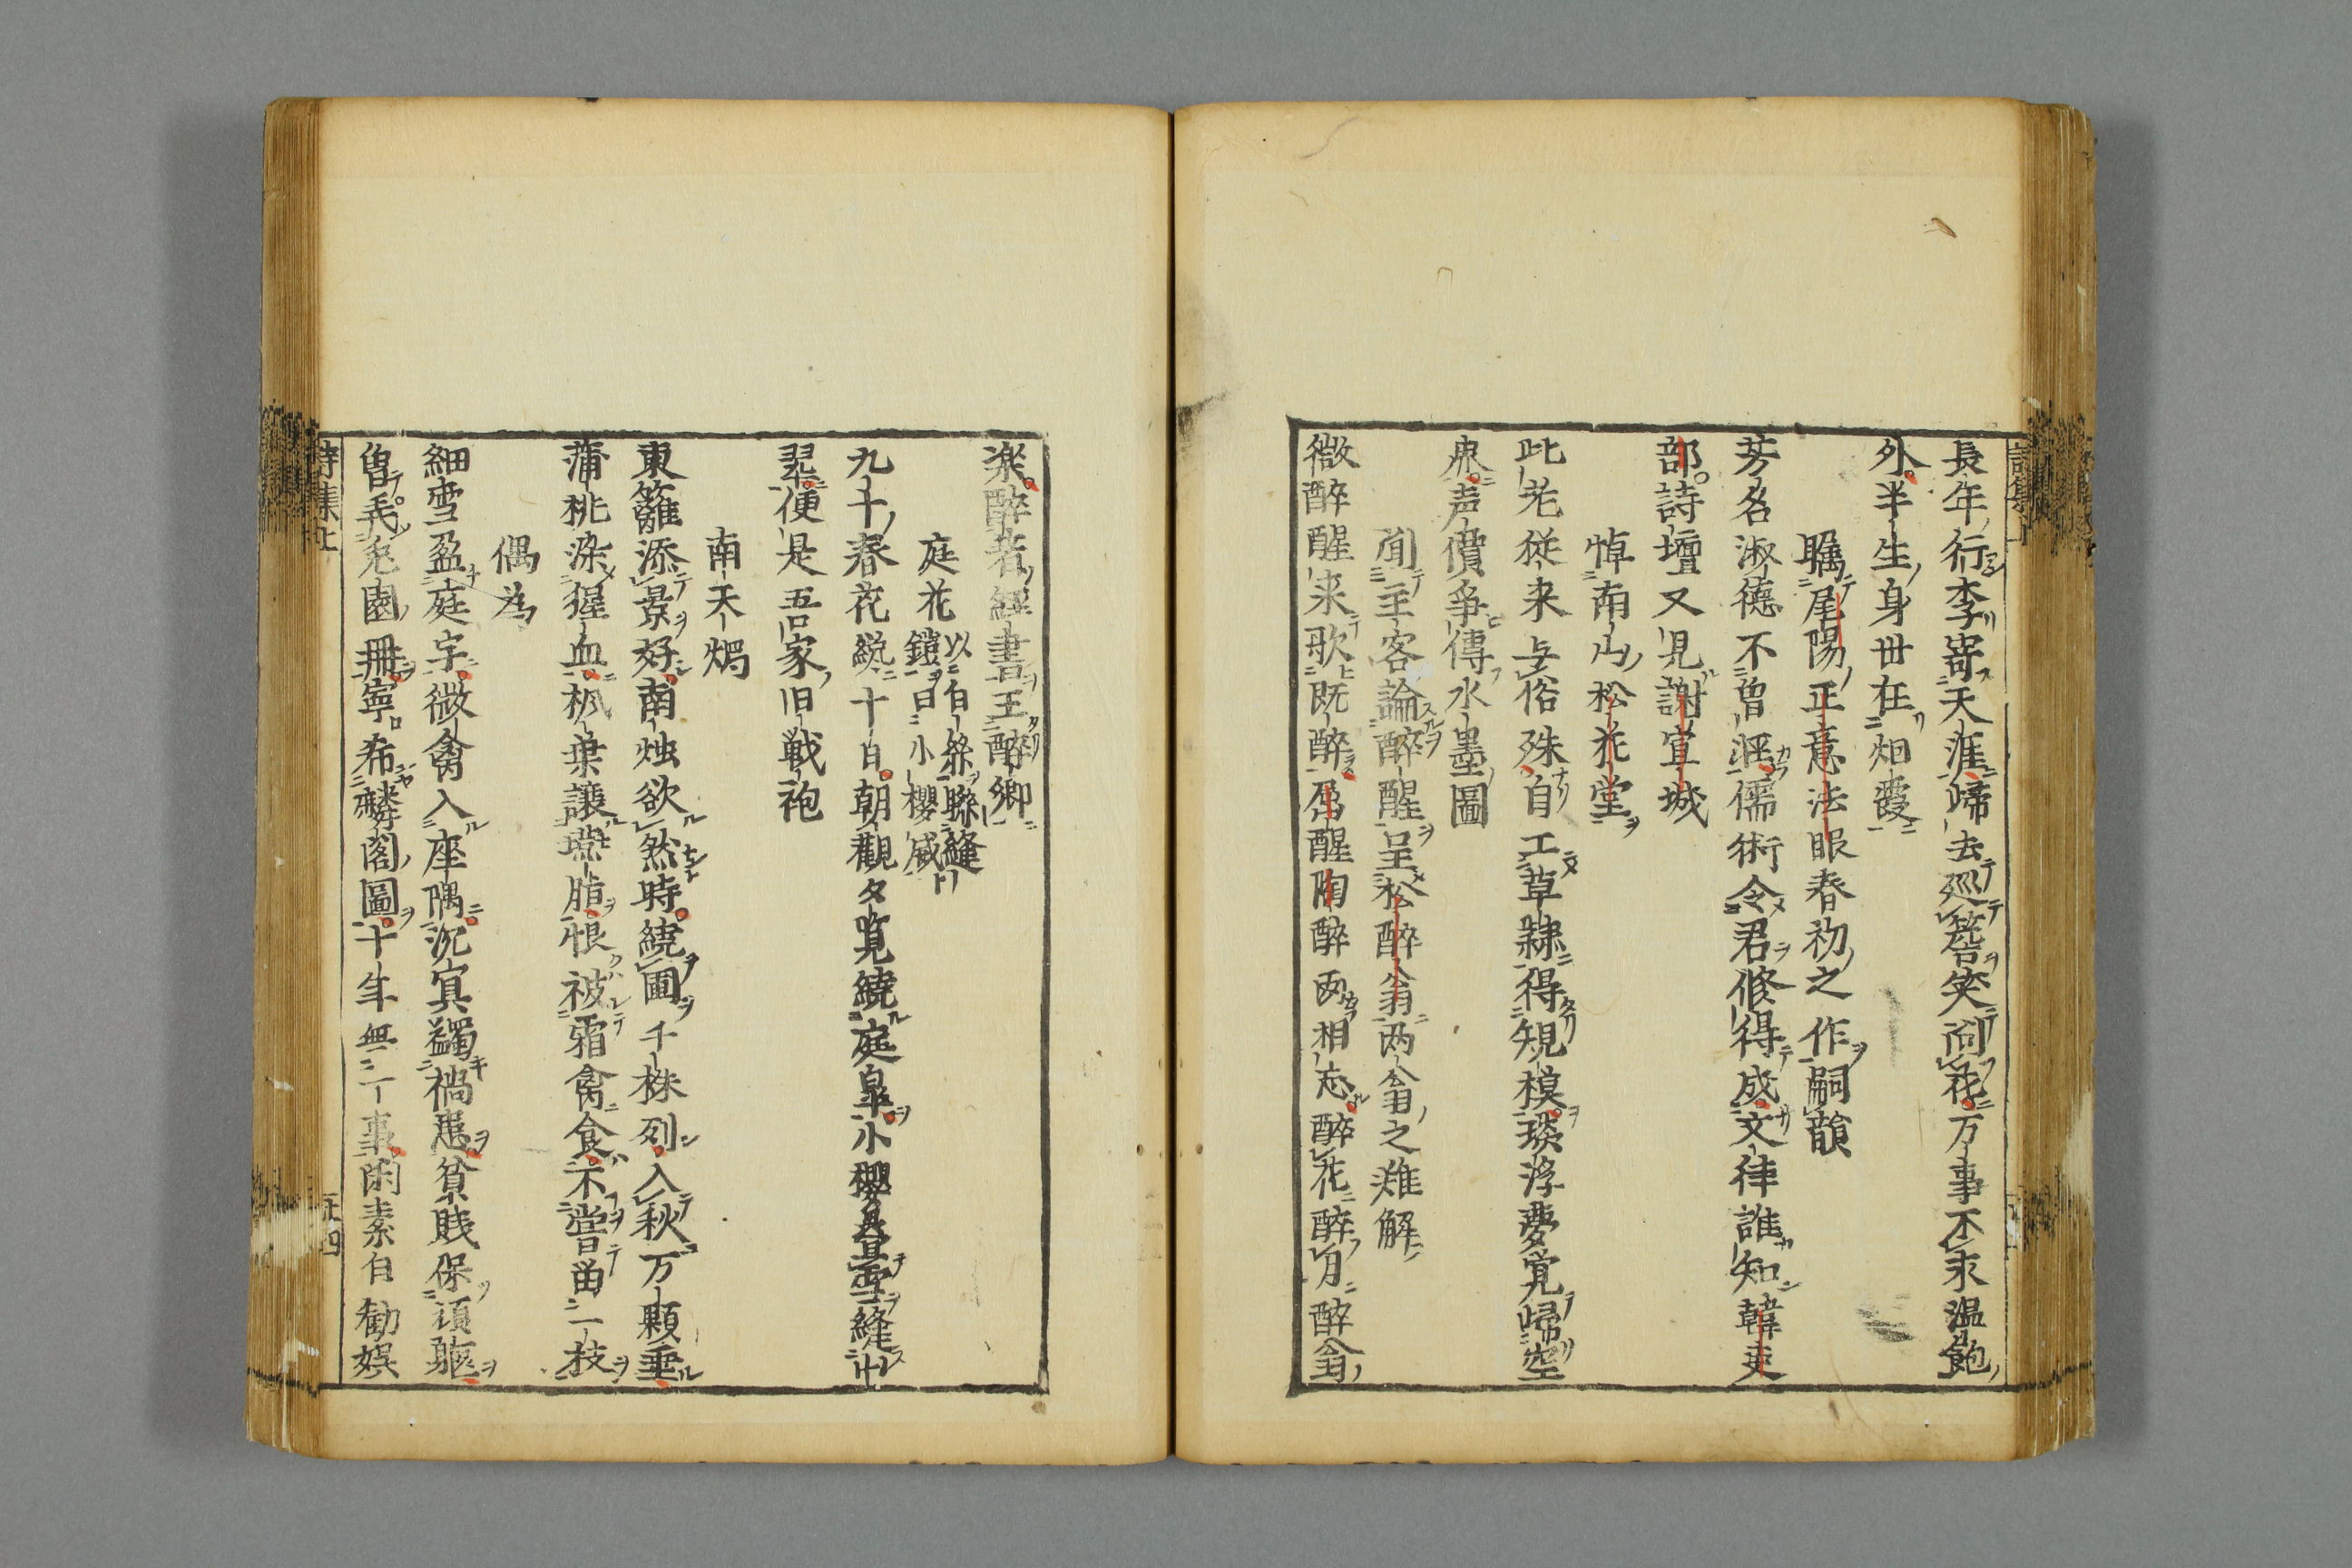 長年行李寄天涯帰去巡簷笑問花万事不求温飽
外半生身世在烟霞
矚尾陽正意法眼春初之作嗣韻
芳名淑德不曽誑儒術令君修得成文律誰知韓吏
部詩壇又見謝宣城
悼南山松花堂
此花從来与俗殊自工草隷得規模琰浮夢覚帰空
声價争傳水墨圖
聞主客論醉醒呈松醉翁两翁之難解
微醉醒来歌既醉屈醒陶醉两相忘醉花醉月醉翁
楽醉者經書王醉卿
庭花以白絲聯縫鎧曰小櫻威
九十春花繞十日朝觀夕覧繞庭皐小櫻疊雪縫
翠便是吾家旧戦袍
南天燭
東籬添景好南燭欲然時繞圃千株列入秋万顆垂
蒲桃染猩血楓葉讓臙脂恨被霜禽食不嘗畄一枝
偶為
細雪盈庭宇微禽入座隅沉冥蠲禍患貧賤保頑軀
魯叟兎園冊寧希麟閣圖十年無一事閑素自勧娯
詩集上